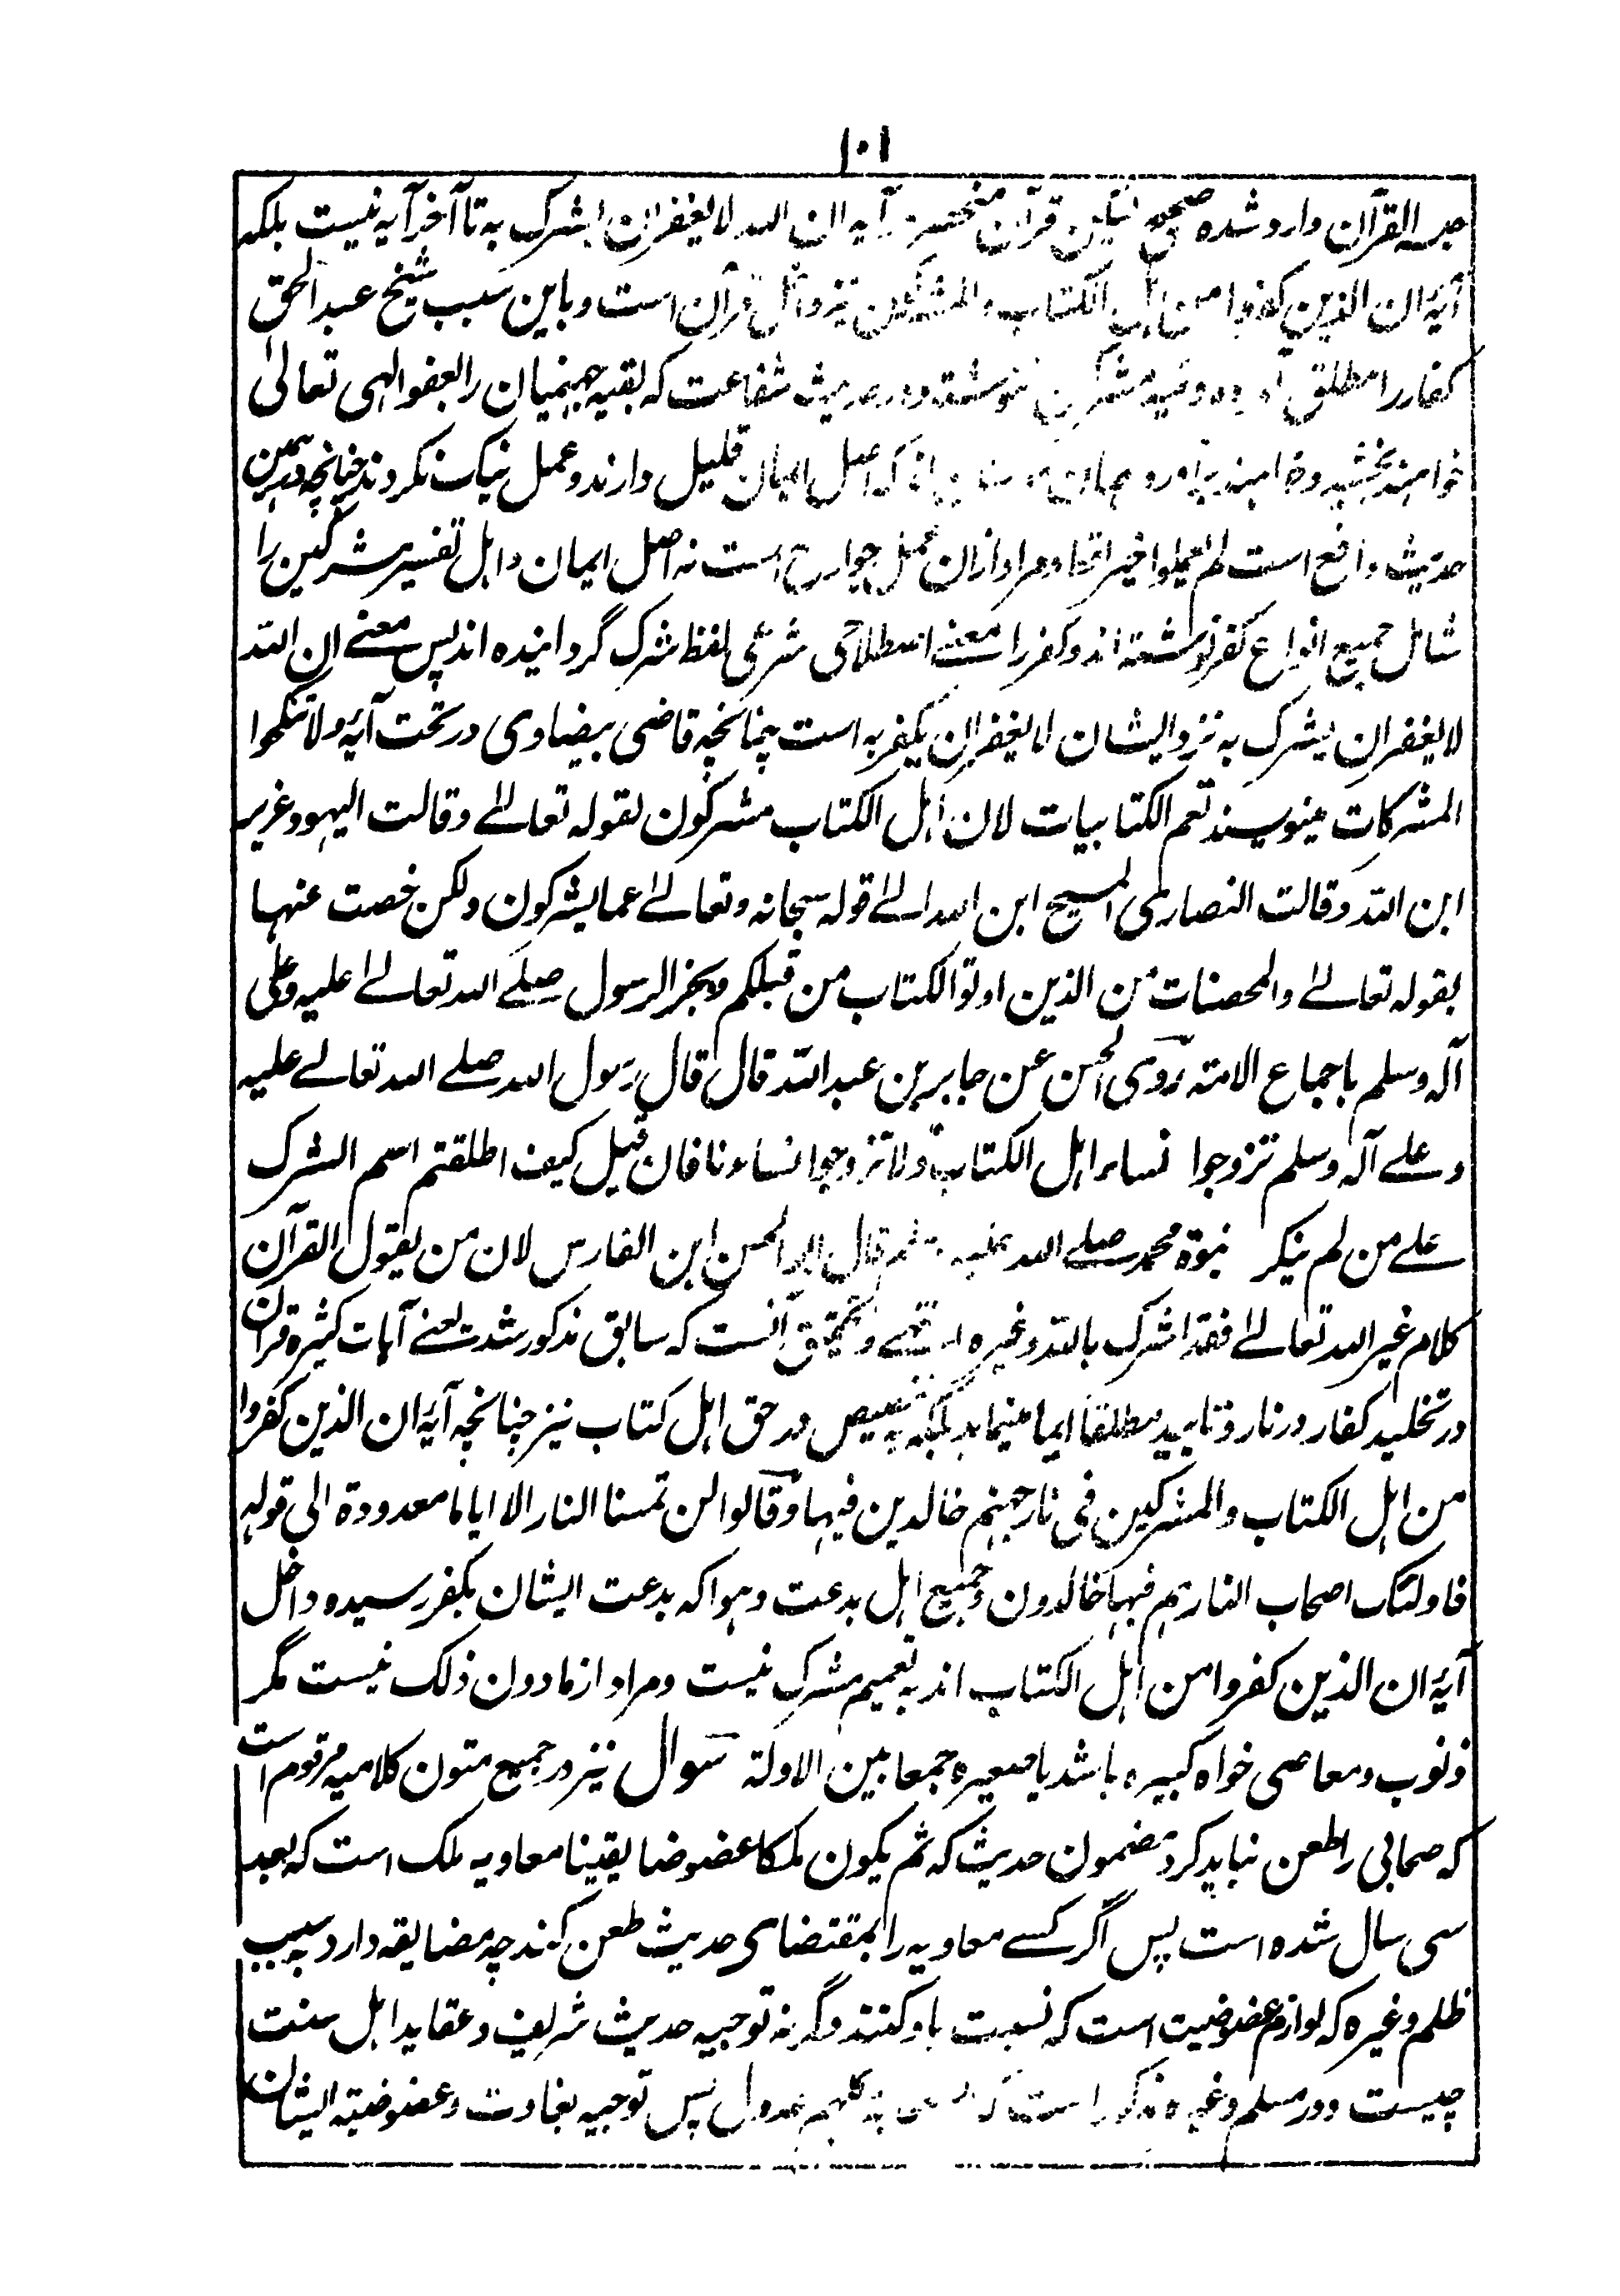 ۱۰۱
حبسه القرآن وارد شده صحیح لیکن قرآن منحصر آیه ان الله لا یغفر ان یشرک به تا آخر آیه نیست بلکه
آیهٔ ان الذین کفروا من اهل الکتاب والمشرکین نیز داخل قرآن است و باین سبب شیخ عبد الحق
کفار را مطلق نوشته و در حدیث شفاعت که بقیه جهنمیان را بعفو الهی تعالیٰ
خواهند بخشید که اصل ایمان قلیل دارند و عمل نیک نکردند چنانچه در همین
حدیث واقع است لم یعملوا خیرا قط و مراد ازان عمل جوارح است نه اصل ایمان و اهل تفسیر مشرکین را
شامل جمیع انواع کفر نوشته اند و کفر را معنے اصطلاحی شرعی لفظ شرک گردانیده اند پس معنے ان الله
لا یغفر ان یشرک به نزد ایشان لا یغفر ان یکفر به است چنانچه قاضی بیضاوی در تحت آیهٔ ولا تنکحوا
المشرکات مینویسند تعم الکتابیات لان اهل الکتاب مشرکون لقوله تعالےٰ وقالت الیهود عزیر
ابن الله وقالت النصاری المسیح ابن الله الےٰ قوله سبحانه وتعالےٰ عما یشرکون ولکن خصت عنها
بقوله تعالےٰ والمحصنات من الذین اوتوا الکتاب من قبلکم وبخبر الرسول صلے الله تعالےٰ علیه وعلی
آله وسلم باجماع الامته روی الحسن عن جابر بن عبد الله قال قال رسول الله صلے الله تعالے علیه
وعلے آله وسلم تزوجوا نساء اهل الکتاب ولا تزوجوا نساءنا فان قیل کیف اطلقتم اسم الشرک
علے من لم ینکر نبوة محمد صلے الله علیه وسلم قال ابو الحسن ابن الفارس لان من یقول القرآن
کلام غیر الله تعالےٰ فقد اشرک بالله وغیره انتهے و تحقیق آنست که سابق مذکور شدت یعنے آیات کثیره قرآن
در تخلید کفار در نار و تابید مطلقا ایما مینماید بلکه بتخصیص در حق اهل کتاب نیز چنانچه آیهٔ ان الذین کفروا
من اهل الکتاب والمشرکین فی نار جهنم خالدین فیها وقالوا لن تمسنا النار الا ایاما معدودة الی قوله
فاولئک اصحاب النار هم فیها خالدون و جمیع اهل بدعت و هوا که بدعت ایشان بکفر رسیده داخل
آیهٔ ان الذین کفروا من اهل الکتاب اند به تعمیم مشرک نیست و مراد از مادون ذلک نیست مگر
ذنوب و معاصی خواه کبیره باشد یا صغیره جمعا بین الادلة سوال نیز در جمیع متون کلامیه مرقوم است
که صحابی را طعن نباید کرد مضمون حدیث که ثم یکون ملکا عضوضا یقینا معاویه ملک است که بعد
سی سال شده است پس اگر کسے معاویه را بمقتضای حدیث طعن کند چه مضایقه دارد به سبب
ظلم وغیره که لوازم عضوضیت است که نسبت باو کنند وگرنه توجیه حدیث شریف و عقاید اهل سنت
چیست و در مسلم وغیره مذکور است که کلهم عدول پس توجیه بغاوت و عضوضیته ایشان